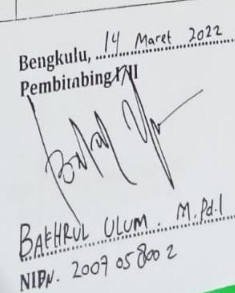 Bengkulu, 14 Maret 2022
Pembimbing I/II
BAEHRUL ULUM. M.Pd.I
NIDN. 2007058002